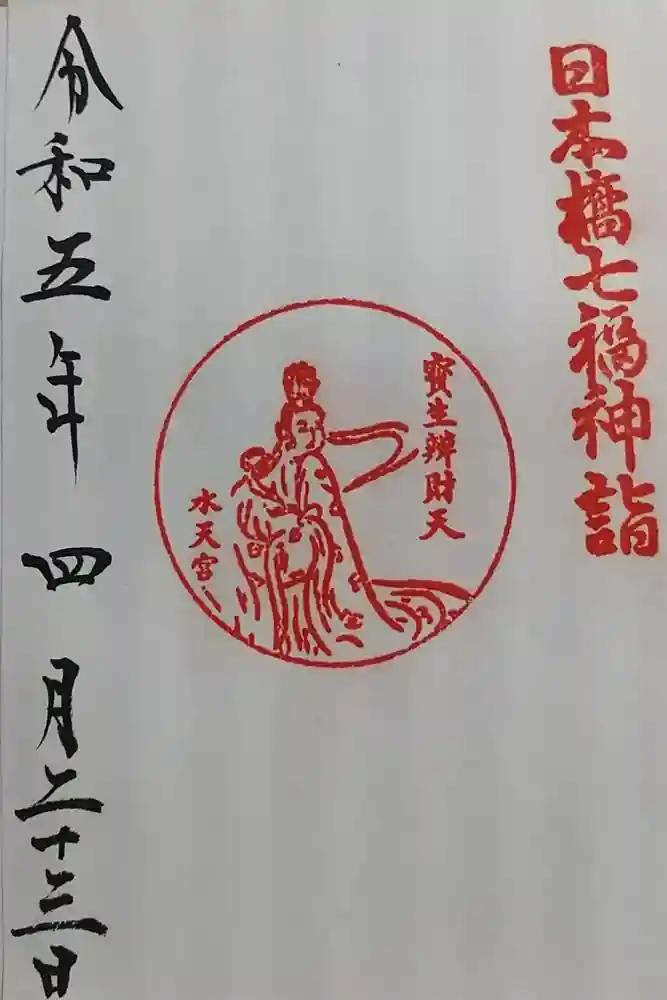 日本橋七福神詣
寳生辨財天
水天宮
令和五年四月二十三日